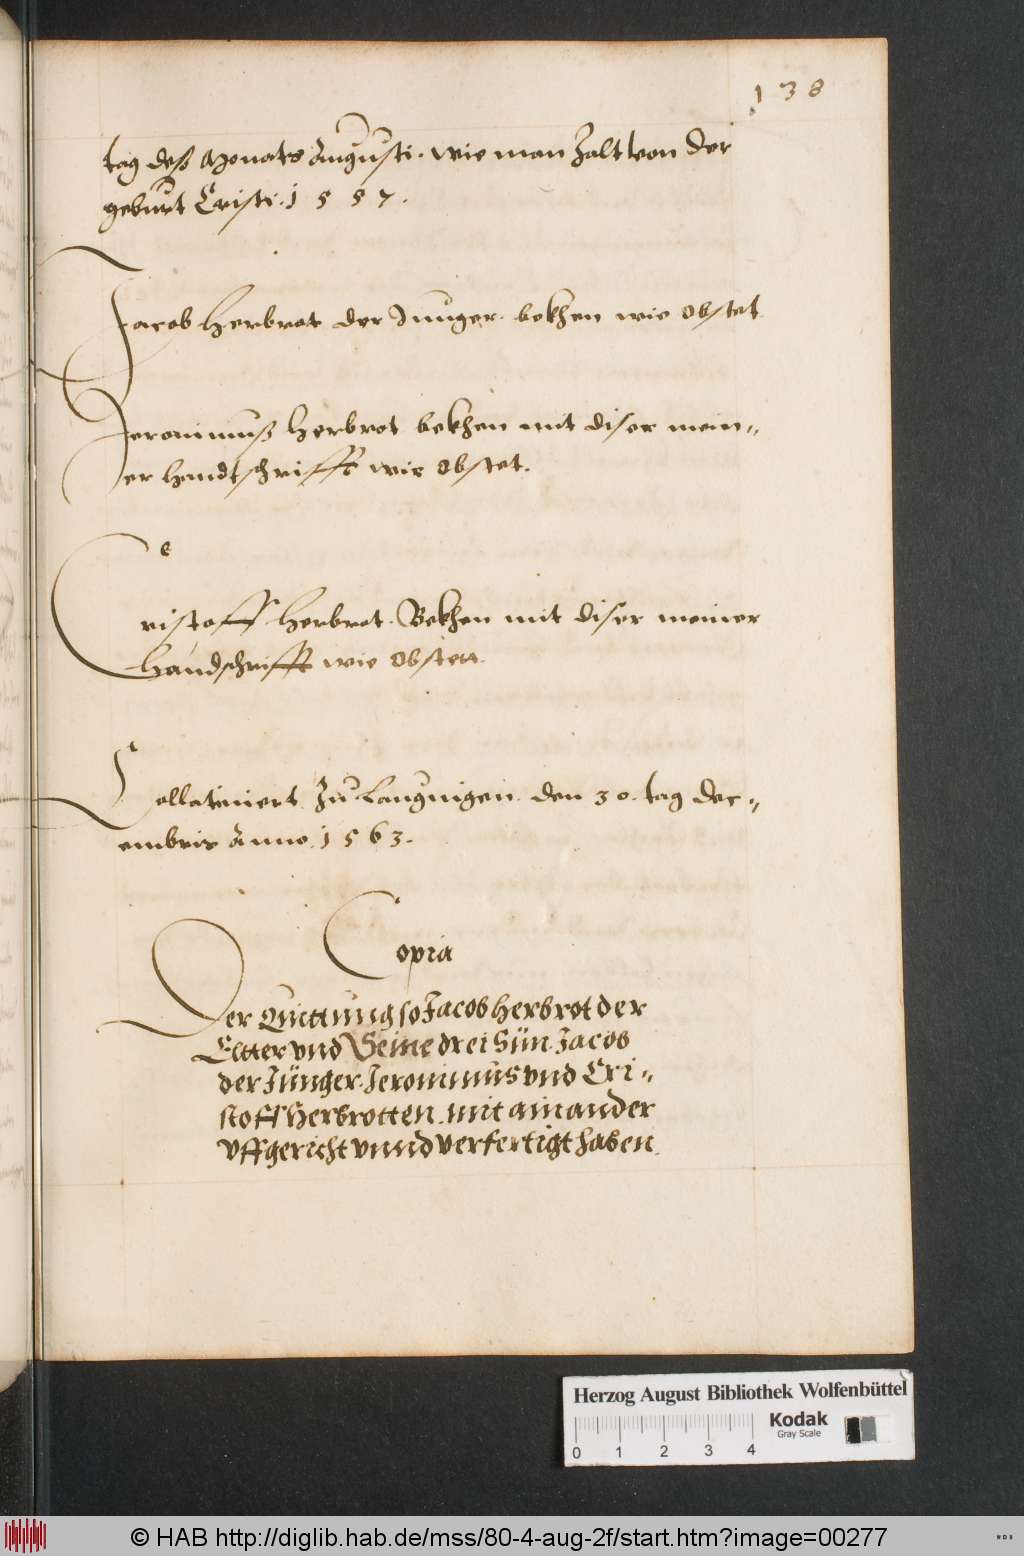 138
tag deß Monats Augusti. wie man Zalt von der
geburt Cristi. 1557.
Jacob Herbrot der Junger. bekhen wie obstet.
Jeronimuß Herbrot bekhen mit diser mein„
er handtschrifft wie obstet.
Cristoff Herbrot. Bekhen mit diser meiner
handschrifft wie obsteet.
Collationiert. Zu Laugnigen. den 30. tag dec„
embris Anno. 1563.
Copia
Der Quittung so Jacob Herbrot der
Eltter vnd Seine drei Sün. Jacob
der Jünger. Jeronimus vnd Cri„
stoff Herbrotten. mit ainander
vffgericht vnnd verfertigt haben.
Herzog August Bibliothek Wolfenbüttel
Kodak
Gray Scale
0 1 2 3 4
© HAB http://diglib.hab.de/mss/80-4-aug-2f/start.htm?image=00277